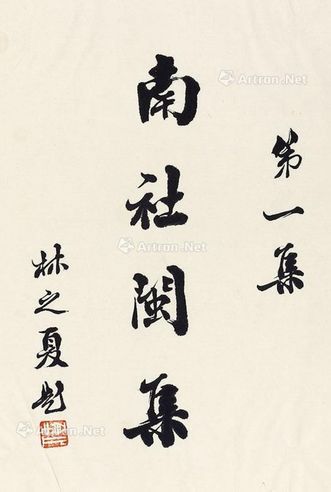 第一集
南社闽集
林之夏題
Artron.Net
Artron.Net
Artron.Net
Artron.Net